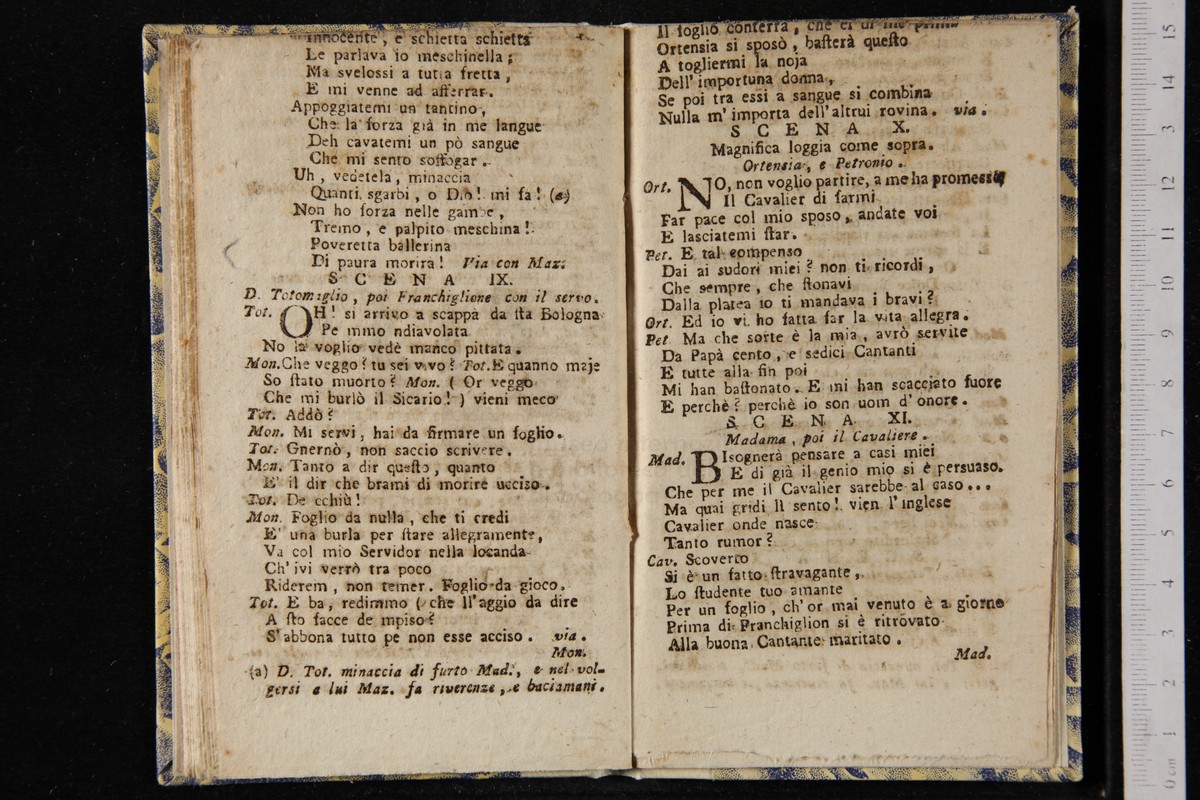 Innocente, e schietta schietta
Le parlava io meschinella;
Ma svelossi a tutta fretta,
E mi venne ad afferrar.
Appoggiatemi un tantino,
Che la forza già in me langue
Deh cavatemi un pò sangue
Che mi sento soffogar.
Uh, vedetela, minaccia
Quanti sgarbi, o Dio! mi fa! (a)
Non ho forza nelle gambe,
Tremo, e palpito meschina!
Poveretta ballerina
Di paura morirà! Via con Maz.
SCENA IX.
D. Totomiglio, poi Franchiglione con il servo.
Tot. OH! si arrivo a scappà da sta Bologna
Pe mmo ndiavolata
No la voglio vedè manco pittata.
Mon. Che veggo? tu sei vivo? Tot. E quanno maje
So stato muorto? Mon. (Or veggo
Che mi burlò il Sicario!) vieni meco
Tot. Addò?
Mon. Mi servi, hai da firmare un foglio.
Tot. Gnernò, non saccio scrivere.
Mon. Tanto a dir questo, quanto
E' il dir che brami di morire ucciso.
Tot. De cchiù!
Mon. Foglio da nulla, che ti credi
E' una burla per stare allegramente,
Va col mio Servidor nella locanda
Ch' ivi verrò tra poco
Riderem, non temer. Foglio da gioco.
Tot. E ba, redimmo (che ll'aggio da dire
A sto facce de mpiso?
S'abbona tutto pe non esse acciso. via.
Mon.
(a) D. Tot. minaccia di furto Mad., e nel vol-
gersi a lui Maz. fa riverenze, e baciamani.
Il foglio conterrà, che ei di me prima
Ortensia si sposò, basterà questo
A togliermi la noja
Dell' importuna donna,
Se poi tra essi a sangue si combina
Nulla m' importa dell' altrui rovina. via.
SCENA X.
Magnifica loggia come sopra.
Ortensia, e Petronio.
Ort. NO, non voglio partire, a me ha promesso
Il Cavalier di farmi
Far pace col mio sposo, andate voi
E lasciatemi star.
Per. E tal compenso
Dai ai sudori miei? non ti ricordi,
Che sempre, che stonavi
Dalla platea io ti mandava i bravi?
Ort. Ed io vi ho fatta far la vita allegra.
Pet Ma che sorte è la mia, avrò servite
Da Papà cento, e sedici Cantanti
E tutte alla fin poi
Mi han bastonato. E mi han scacciato fuore
E perchè? perchè io son uom d' onore.
SCENA XI.
Madama, poi il Cavaliere.
Mad. BIsognerà pensare a casi miei
E di già il genio mio si è persuaso.
Che per me il Cavalier sarebbe al caso...
Ma quai gridi lì sento! vien l' inglese
Cavalier onde nasce
Tanto rumor?
Cav. Scoverto
Si è un fatto stravagante,
Lo studente tuo amante
Per un foglio, ch' or mai venuto è a giorno
Prima di Franchiglion si è ritrovato
Alla buona Cantante maritato.
Mad.
15
14
3
12
11
10
9
8
7
6
5
4
3
2
1
0 cm